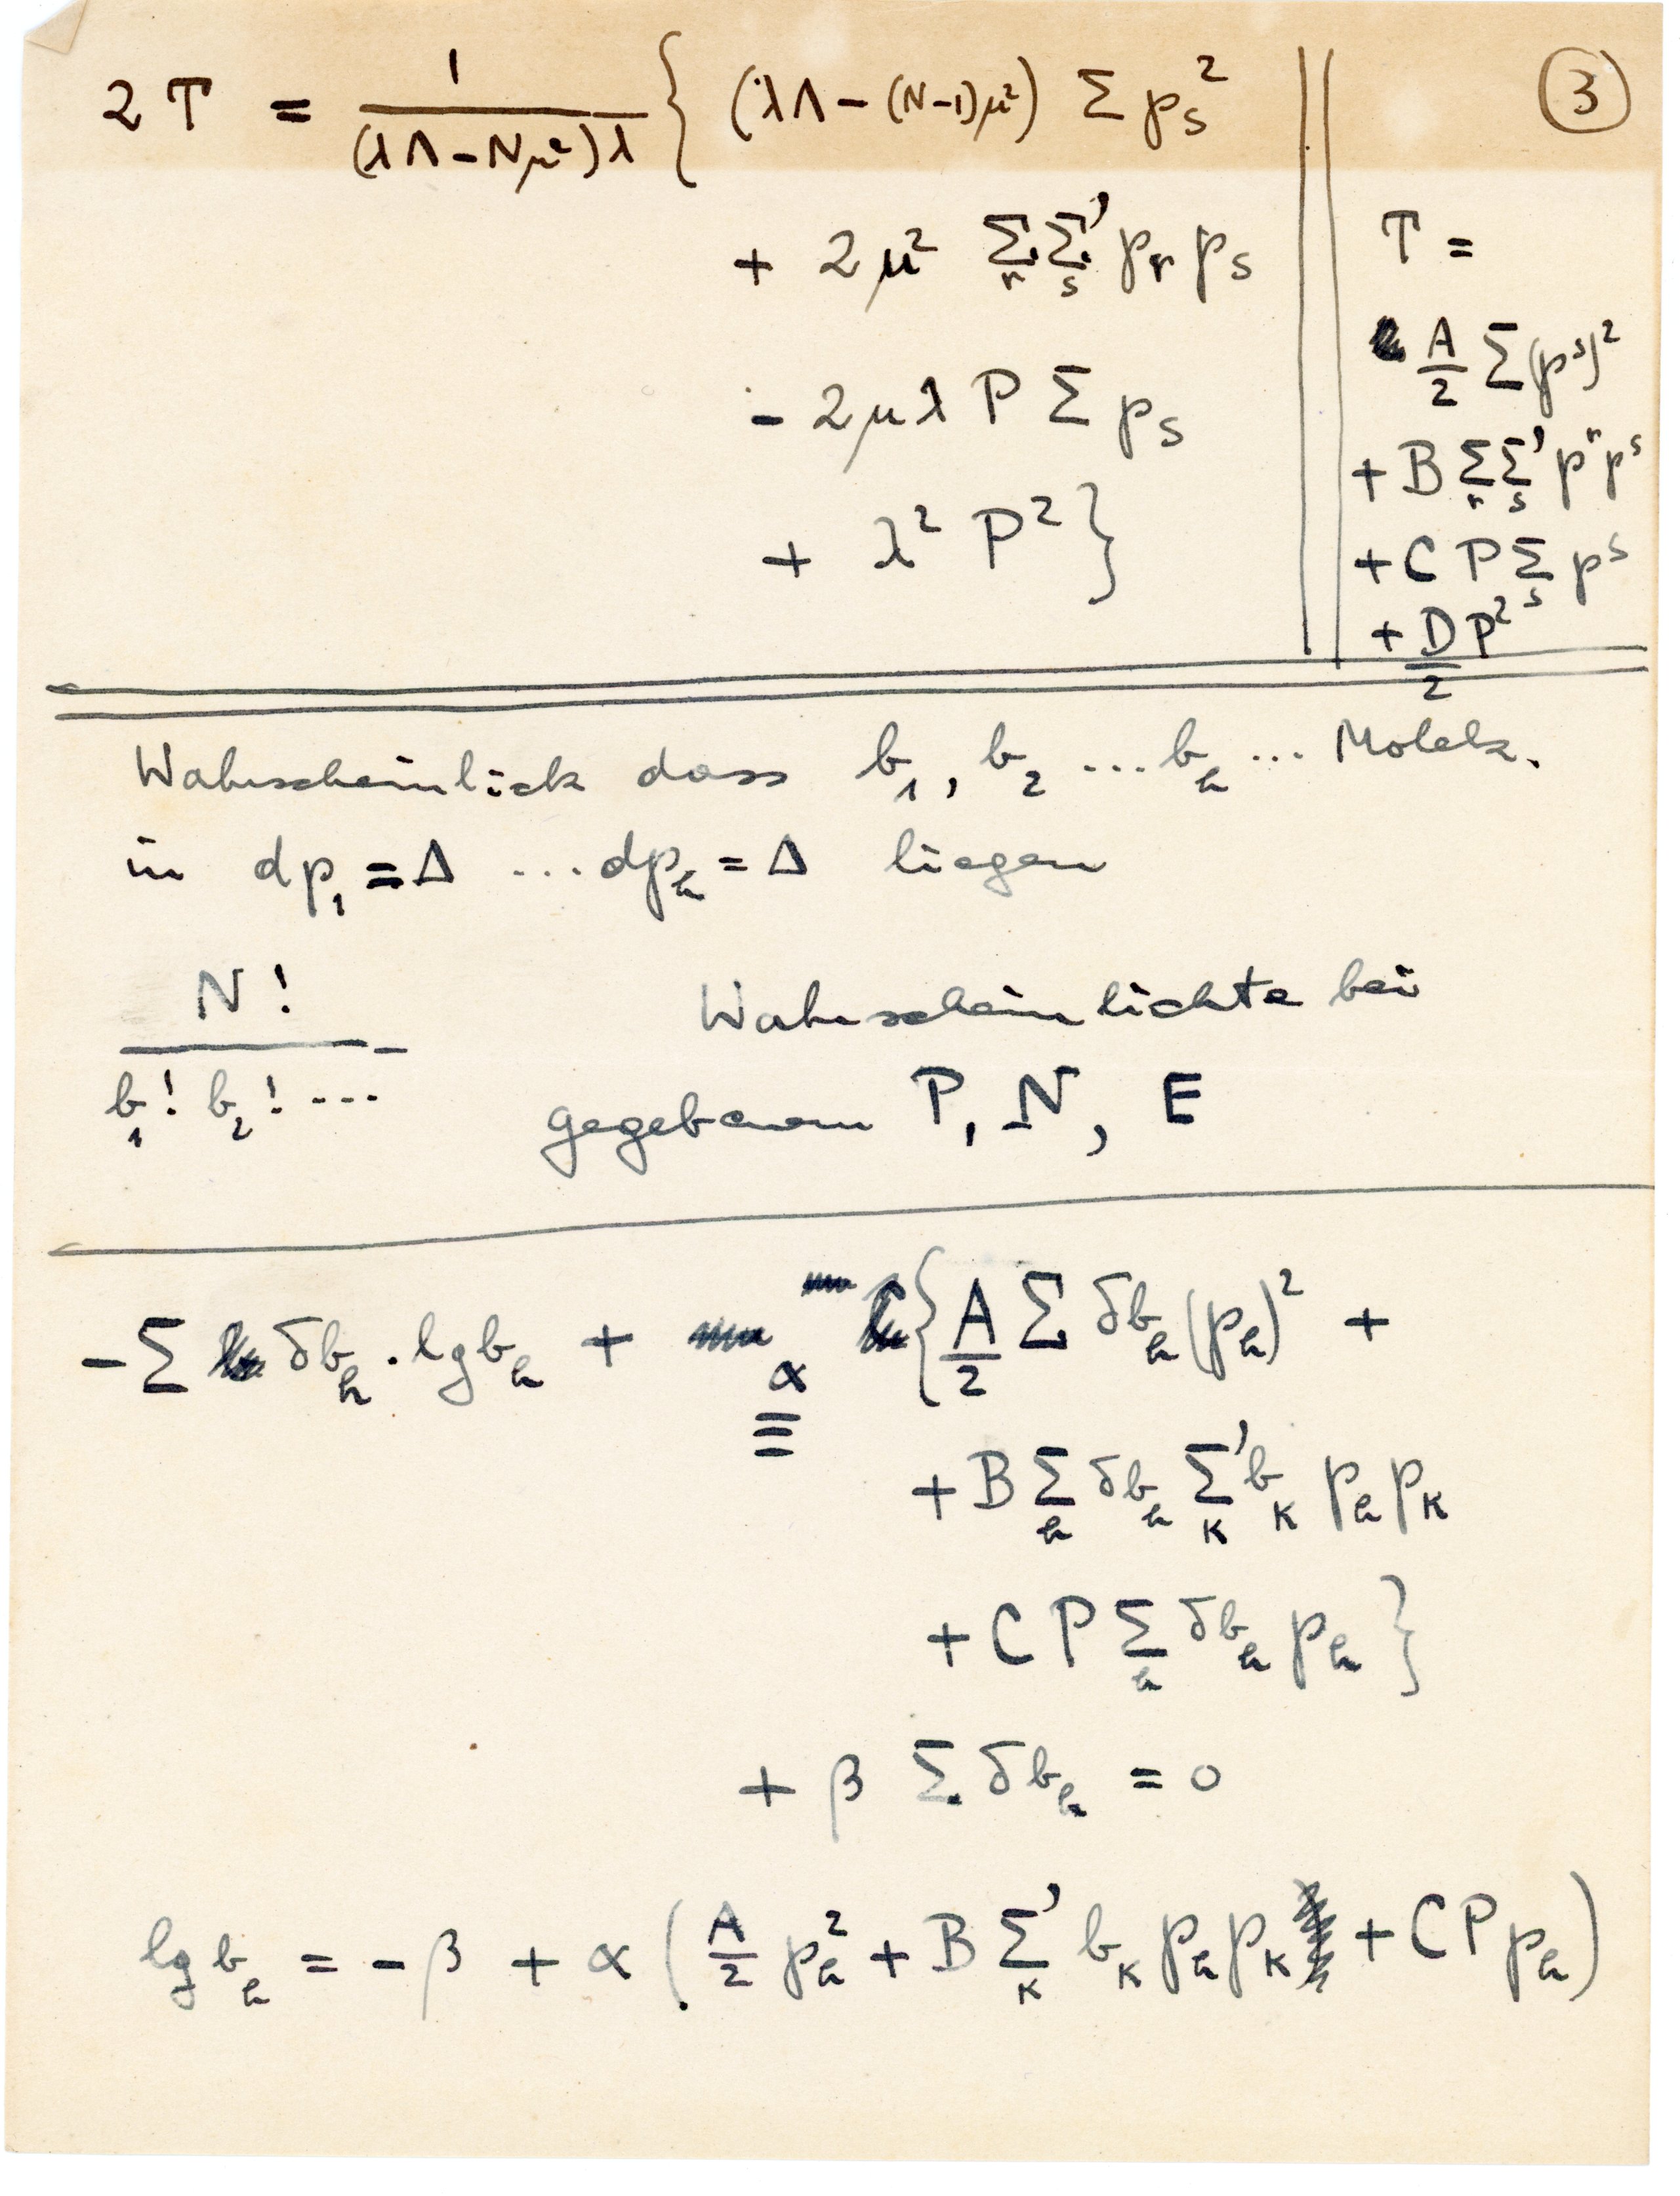 2T = 1/((λΛ − Nμ²)λ) { (λΛ − (N−1)μ²) Σ p_s²
+ 2μ² Σ_r Σ'_s p_r p_s
− 2μλ P Σ p_s
+ λ² P² }
③
T =
A/2 Σ(p^s)²
+ B Σ_r Σ'_s p^r p^s
+ C P Σ_s p^s
+ D/2 P²
Wahrscheinlich dass b_1, b_2 ... b_h ... Molek.
in dp_1 = Δ ... dp_h = Δ liegen
N! / (b_1! b_2! ---
Wahrscheinlichte bei
gegebenem P, N, E
− Σ δb_h . lg b_h + α { A/2 Σ δb_h (p_h)² +
+ B Σ_h δb_h Σ'_K b_K p_h p_K
+ C P Σ_h δb_h p_h }
+ β Σ δb_h = 0
lg b_h = − β + α ( A/2 p_h² + B Σ'_K b_K p_h p_K + C P p_h )